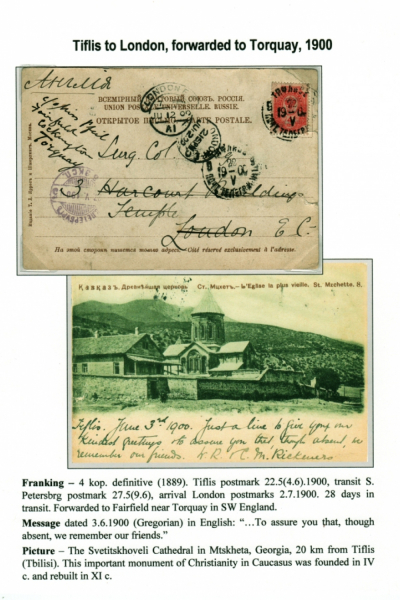 Tiflis to London, forwarded to Torquay, 1900
Англія
ВСЕМІРНЫЙ ПОЧТОВЫЙ СОЮЗЪ. РОССІЯ.
UNION POSTALE UNIVERSELLE. RUSSIE.
ОТКРЫТОЕ ПИСЬМО. CARTE POSTALE.
LONDON
Torquay
Surg. Col.
3 Harcourt Buildings
Temple
London E C
На этой сторонѣ пишется только адресъ. Côté réservé exclusivement à l'adresse.
Кавказъ. Древнѣйшая церковь Ст. Мцхетъ. L'Eglise la plus vieille. St. Mzchette.
Tiflis. June 3rd 1900. Just a line to give you our
kindest greetings & to assure you that though absent, we
remember our friends. W. R. C. M. Rickmers
Franking – 4 kop. definitive (1889). Tiflis postmark 22.5(4.6).1900, transit S.
Petersbrg postmark 27.5(9.6), arrival London postmarks 2.7.1900. 28 days in
transit. Forwarded to Fairfield near Torquay in SW England.
Message dated 3.6.1900 (Gregorian) in English: “…To assure you that, though
absent, we remember our friends.”
Picture – The Svetitskhoveli Cathedral in Mtskheta, Georgia, 20 km from Tiflis
(Tbilisi). This important monument of Christianity in Caucasus was founded in IV
c. and rebuilt in XI c.